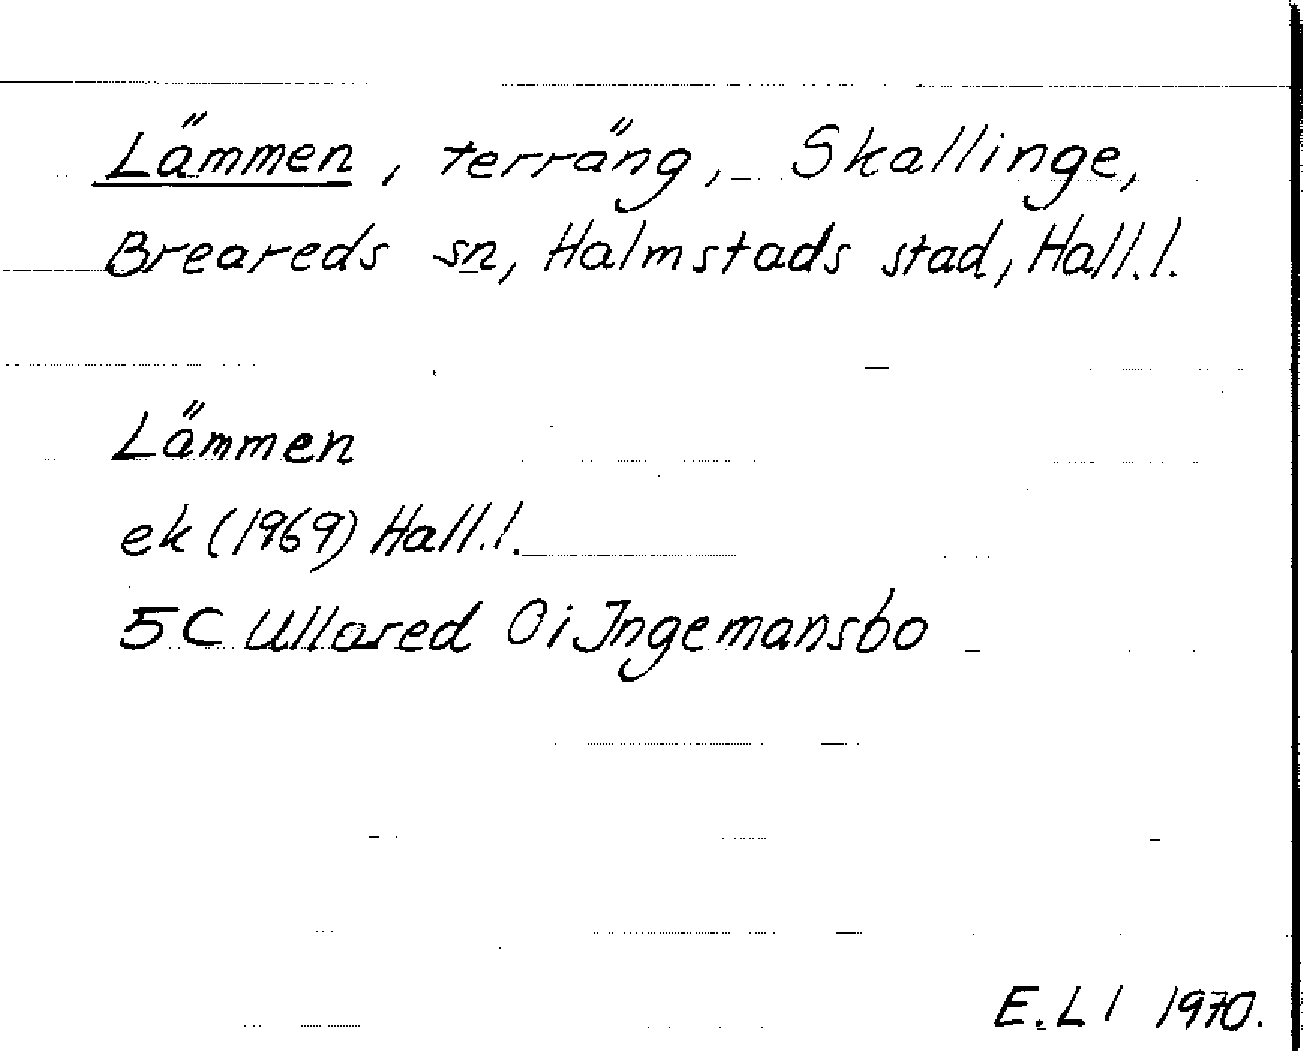 Lämmen, terräng, Skallinge,
Breareds sn, Halmstads stad, Hall.l.
Lämmen
ek (1969) Hall.l.
5C Ullared Ö i Ingemansbo
E.Ll 1970.